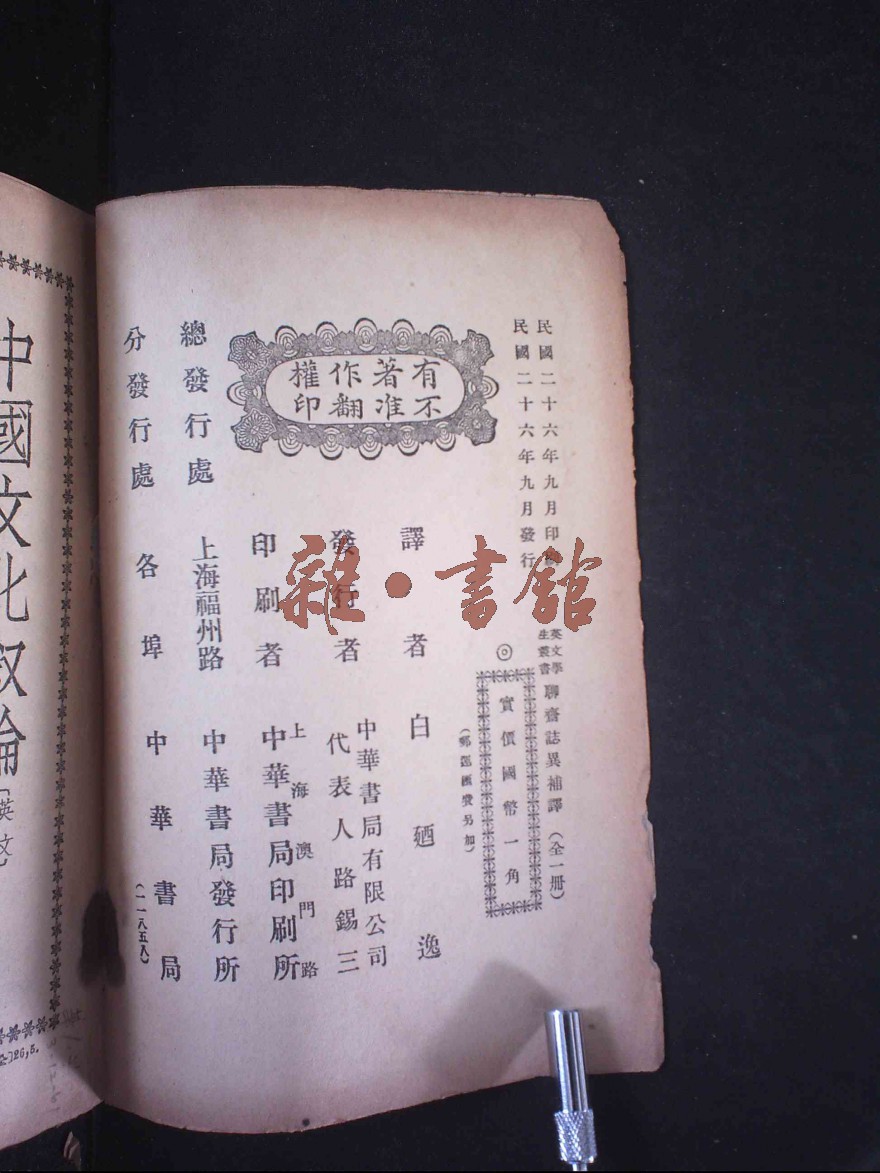 民國二十六年九月印刷
民國二十六年九月發行
英文學
生叢書
聊齋誌異補譯（全一冊）
◎
實價國幣一角
（郵運匯費另加）
有著作權
不准翻印
譯者 白廼逸
發行者 中華書局有限公司
代表人 路錫三
印刷者 上海澳門路
中華書局印刷所
總發行處 上海福州路 中華書局發行所
分發行處 各埠 中華書局
（一一八五八）
雜·書館
中國文化叙論
［英文］
26,5.